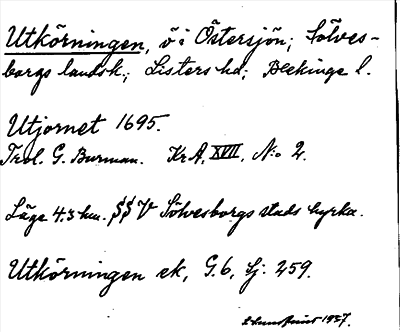 Utkörningen, ö i Östersjön; Sölves-
borgs landsk.; Listers hd; Blekinge l.
Utjornet 1695.
Trol. G. Burman. Kr A, XVII, No 2.
Läge 4.3 km. SSV Sölvesborgs stads kyrka.
Utkörningen ek, G.6, Sj. 259.
1927.